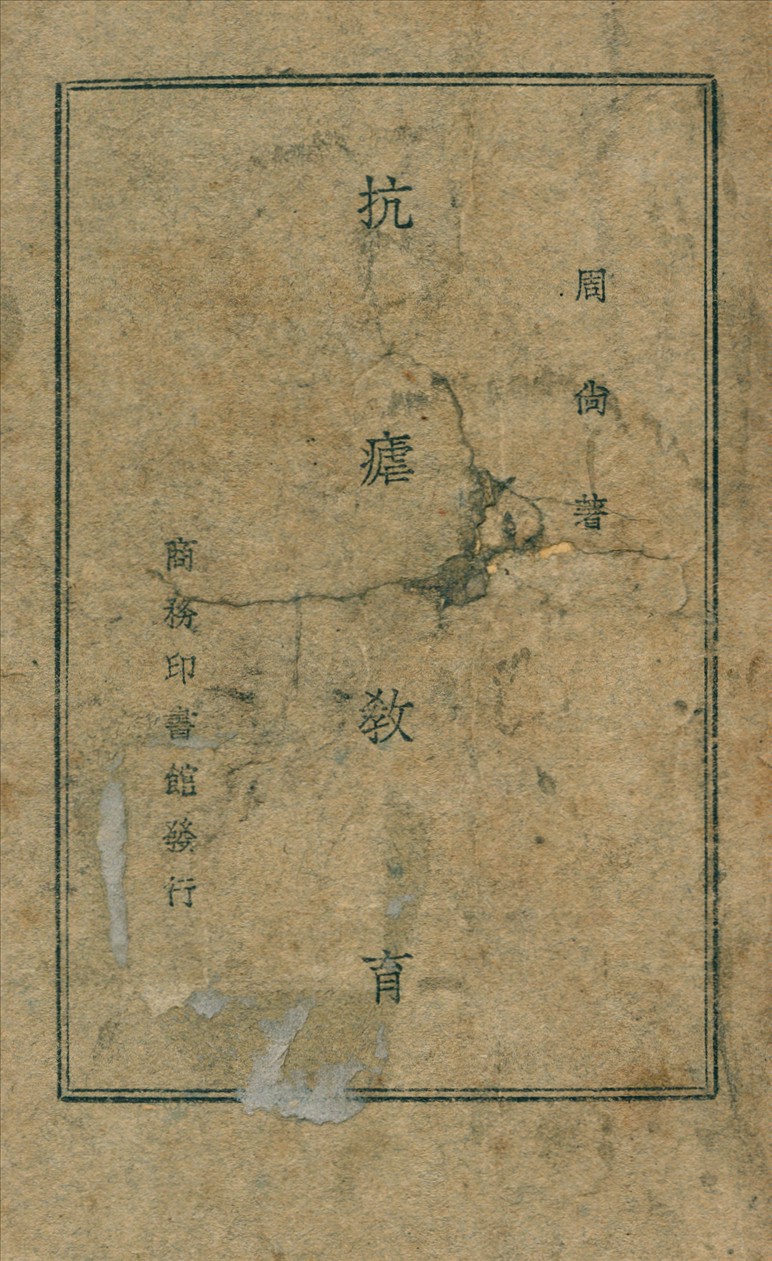 周尙著
抗瘧敎育
商務印書館發行